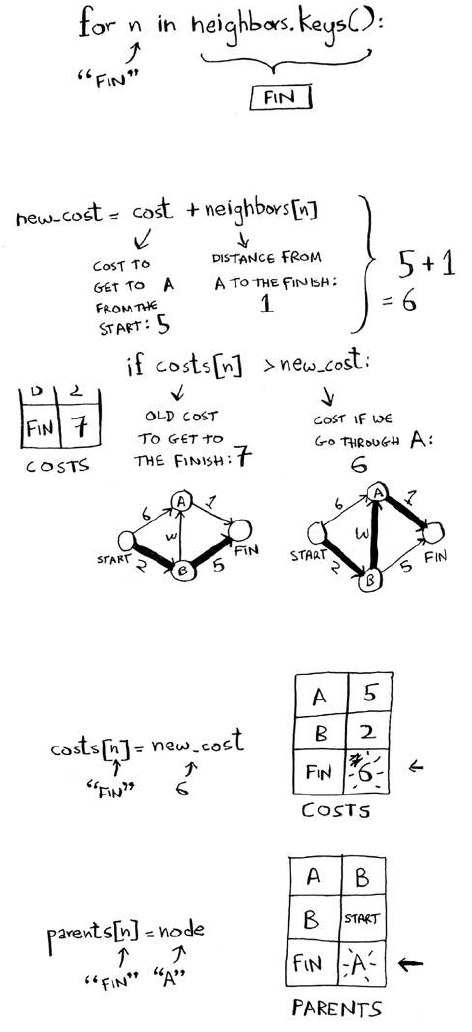 for n in neighbors.keys():
"FIN"
FIN
new_cost = cost + neighbors[n]
COST TO
GET TO A
FROM THE
START: 5
DISTANCE FROM
A TO THE FINISH:
1
5 + 1
= 6
if costs[n] > new_cost:
D 2
FIN 7
COSTS
OLD COST
TO GET TO
THE FINISH: 7
COST IF WE
GO THROUGH A:
6
A
6 1
W
START FIN
2 B 5
A
6 1
W
START FIN
2 B 5
costs[n] = new_cost
"FIN" 6
A 5
B 2
FIN 6
COSTS
parents[n] = node
"FIN" "A"
A B
B START
FIN A
PARENTS